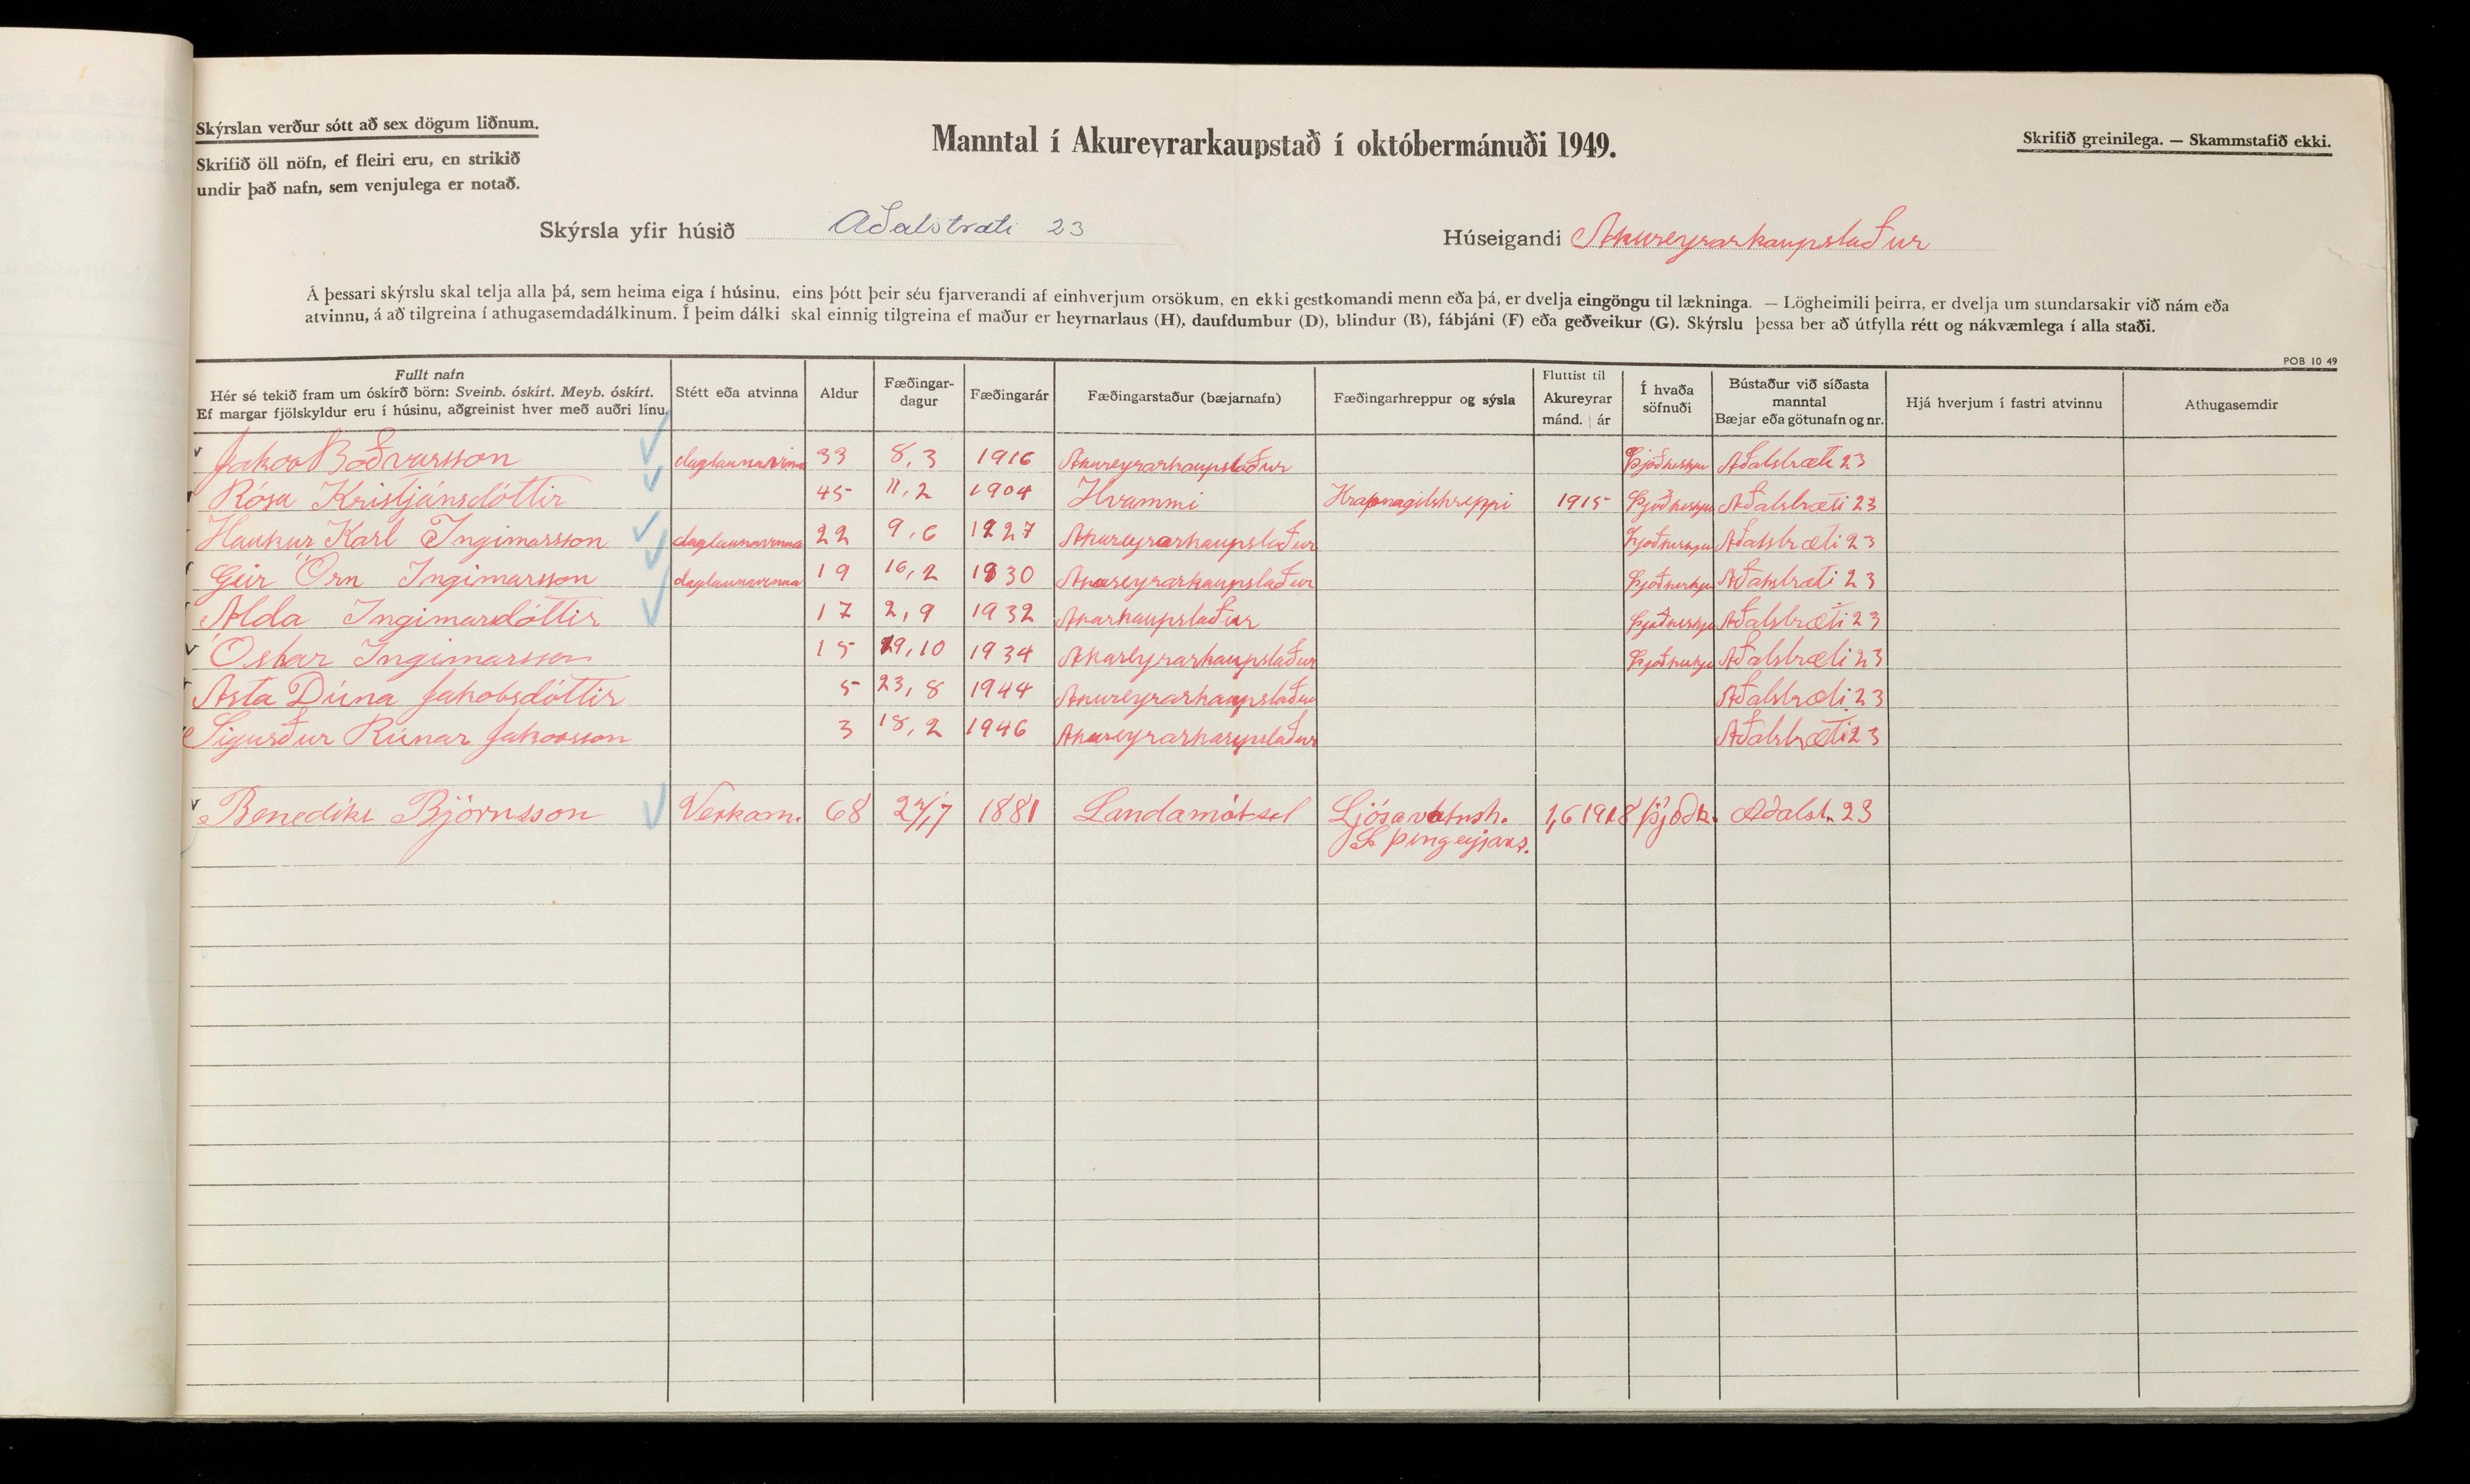 Skýrslan verður sótt að sex dögum liðnum.
Skrifið öll nöfn, ef fleiri eru, en strikið
undir það nafn, sem venjulega er notað.
Manntal í Akureyrarkaupstað í októbermánuði 1949.
Skrifið greinilega. — Skammstafið ekki.
Skýrsla yfir húsið Aðalstræti 23
Húseigandi Akureyrarkaupstaður
Á þessari skýrslu skal telja alla þá, sem heima eiga í húsinu, eins þótt þeir séu fjarverandi af einhverjum orsökum, en ekki gestkomandi menn eða þá, er dvelja eingöngu til lækninga. — Lögheimili þeirra, er dvelja um stundarsakir við nám eða
atvinnu, á að tilgreina í athugasemdadálkinum. Í þeim dálki skal einnig tilgreina ef maður er heyrnarlaus (H), daufdumbur (D), blindur (B), fábjáni (F) eða geðveikur (G). Skýrslu þessa ber að útfylla rétt og nákvæmlega í alla staði.
POB 10 49
Fullt nafn
Hér sé tekið fram um óskírð börn: Sveinb. óskírt. Meyb. óskírt.
Ef margar fjölskyldur eru í húsinu, aðgreinist hver með auðri línu.
Stétt eða atvinna
Aldur
Fæðingar-
dagur
Fæðingarár
Fæðingarstaður (bæjarnafn)
Fæðingarhreppur og sýsla
Fluttist til
Akureyrar
mánd. ár
Í hvaða
söfnuði
Bústaður við síðasta
manntal
Bæjar eða götunafn og nr.
Hjá hverjum í fastri atvinnu
Athugasemdir
Jakob Böðvarsson daglaunavinna 33 8,3 1916 Akureyrarkaupstaður Þjóðkirkju Aðalstræti 23
Rósa Kristjánsdóttir 45 11,2 1904 Hvammi Hrapnagilshreppi 1915 Þjóðkirkju Aðalstræti 23
Haukur Karl Ingimarsson daglaunavinna 22 9,6 1927 Akureyrarkaupstaður Þjóðkirkju Aðalstræti 23
Geir Örn Ingimarsson daglaunavinna 19 16,2 1930 Akureyrarkaupstaður Þjóðkirkju Aðalstræti 23
Alda Ingimarsdóttir 17 2,9 1932 Akarkaupstaður Þjóðkirkju Aðalstræti 23
Óskar Ingimarsson 15 19,10 1934 Akureyrarkaupstaður Þjóðkirkju Aðalstræti 23
Ásta Dúna Jakobsdóttir 5 23,8 1944 Akureyrarkaupstaður Aðalstræti 23
Sigurður Rúnar Jakobsson 3 18,2 1946 Akureyrarkaupstaður Aðalstræti 23
Benedikt Björnsson Verkam. 68 1881 Landamótsel Ljósavatnsh. 1,6 1918 Þjóðk. Aðalst. 23
S. Þingeyjars.